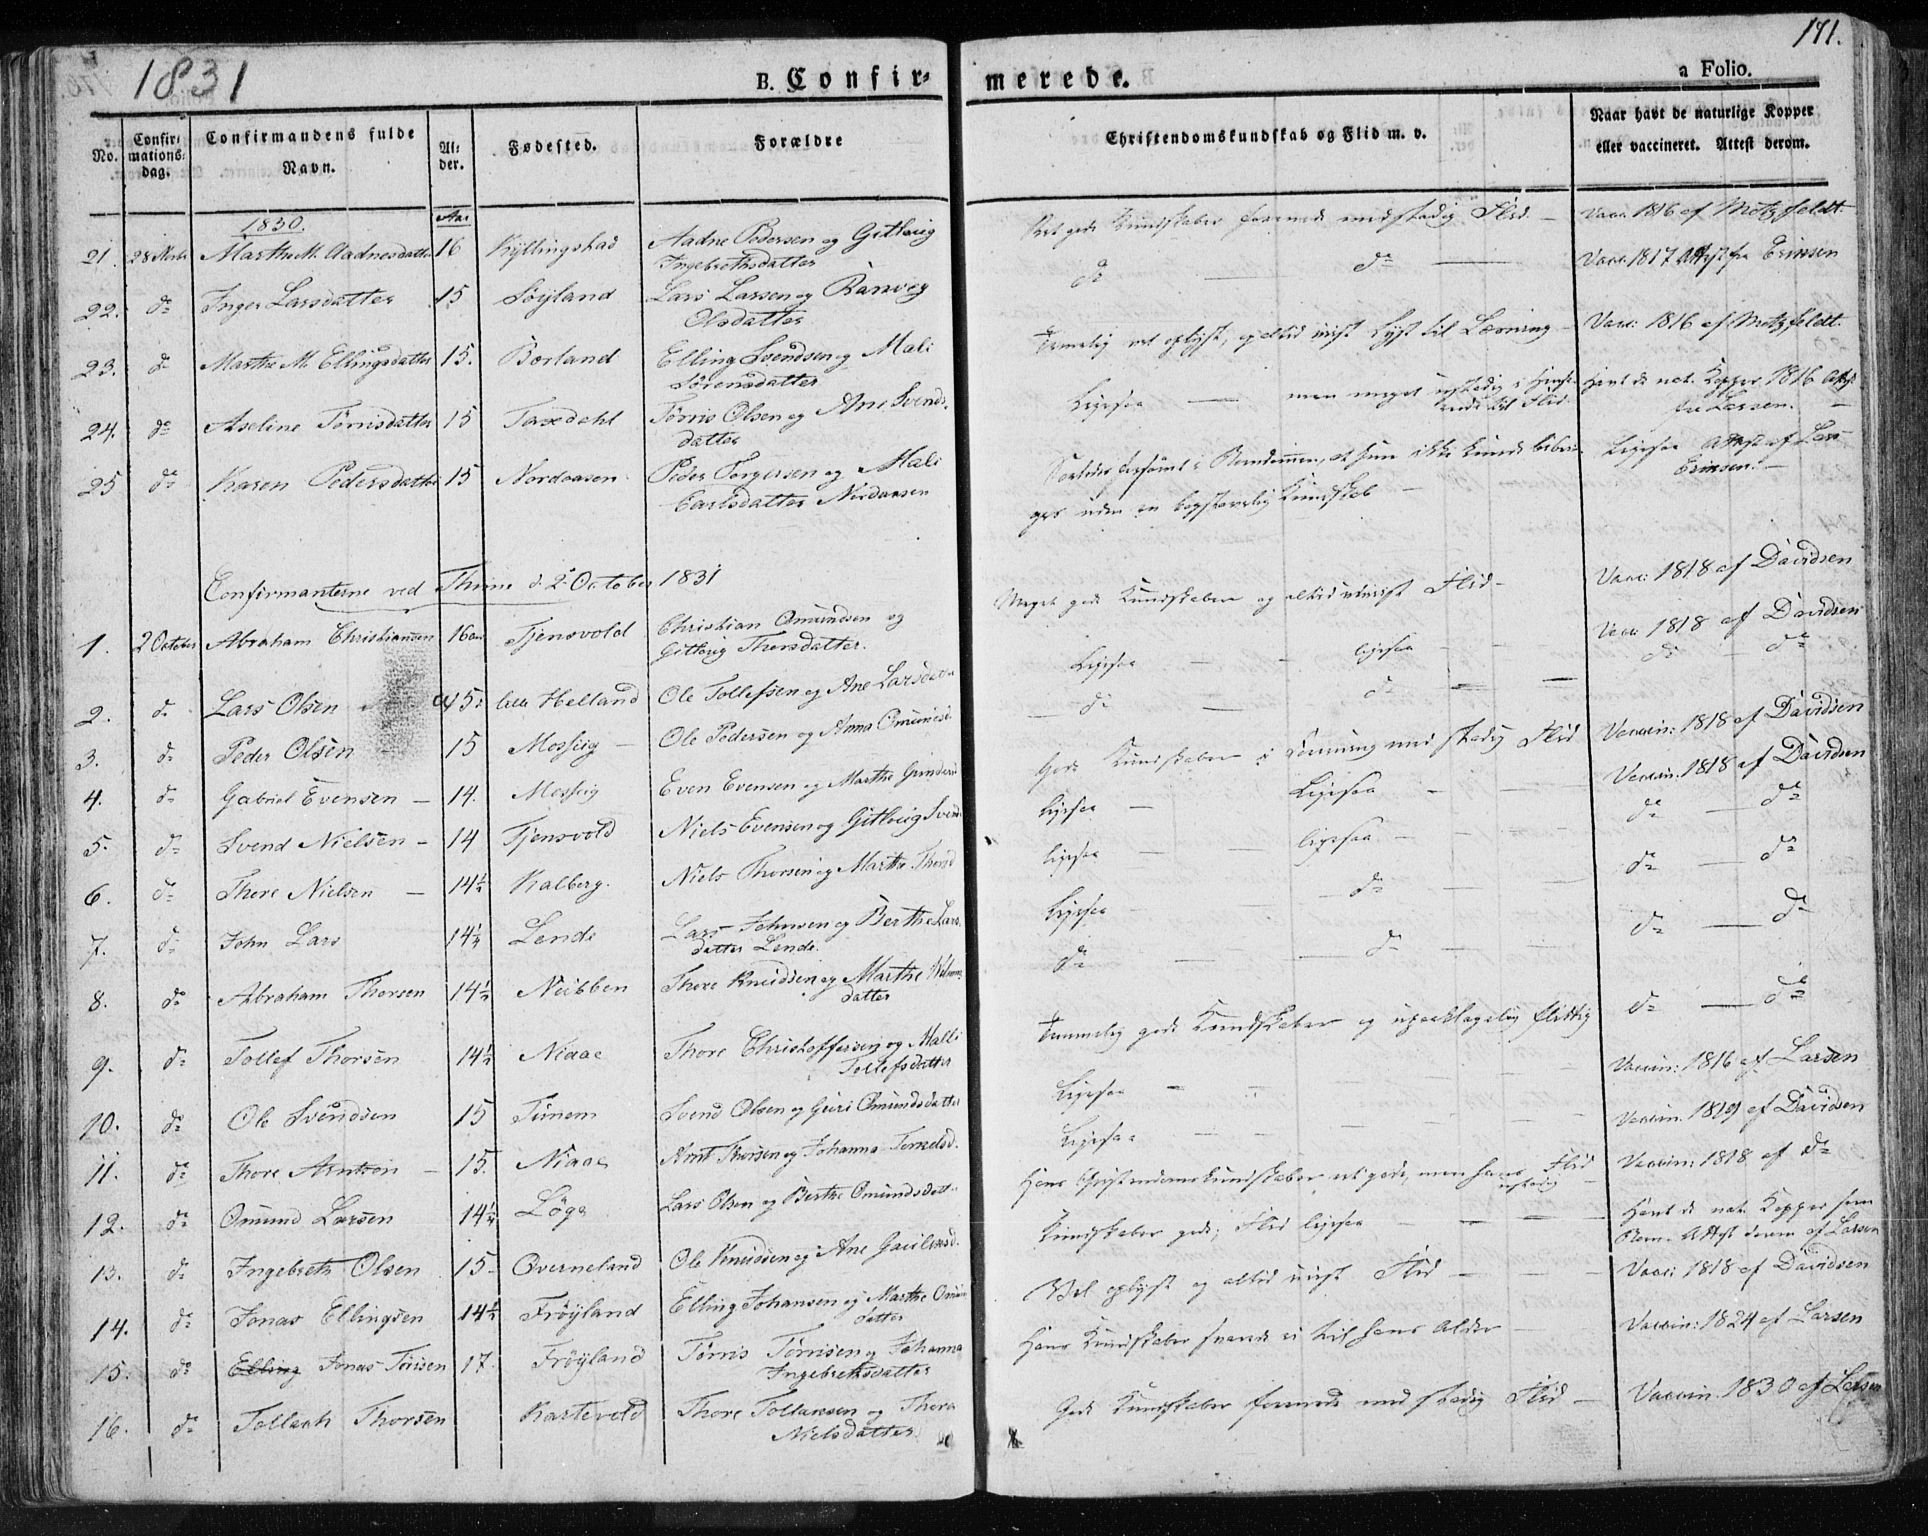 1831
B. Confir-
merede.
171.
a Folio.
No.
Confir-
mations-
dag.
Confirmandens fulde
Navn.
Al-
der.
Fødested.
Forældre
Christendomskundskab og Flid m. v.
Naar havt de naturlige Kopper
eller vaccineret. Attest derom.
1830.
Aar
21. Marthe M. Aadnesdatter 16 Kyllingstad Aadne Pedersen og Gitlaug
Ingebrethsdatter
Ret gode Kundskaber forenede med stadig Flid. — Vacc: 1816 af Motzfeldt.
22. do Inger Larsdatter 15 Søyland Lars Larsen og Ranveg
Olsdatter
do — do — Vacc. 1817 Attest fra Erinsen
23. do Marthe M. Ellingsdatter 15. Børland Elling Svendsen og Mali
Sørensdatter
Temmelig vel oplyst, og altid viist Lyst til Læsning — Vacc: 1816 af Motzfeldt.
24. do Aseline Tørrisdatter 15 Taxedehl Tørris Olsen og Ane Svends-
datter
Ligesaa — men meget ustadig i Hense-
ende til Flid. Havt de nat. Kopper 1816 Attest
fra Larsen. —
25 do Karen Pedersdatter 15 Nordaasen Peder Torgersen og Mali
Carlsdatter Nordaasen
forsømt i Barndommen, at hun ikke kunde
uden en bogstavelig Kundskab — Ligesaa Attest af Lars
Erinsen. —
Confirmanterne ved Thime d. 2 October 1831
1. 2 October Abraham Christiansen 16 aar Tjensvold Christian Omundsen og
Gitlaug Thorsdatter.
Meget gode Kundskaber og altid udviist Flid — Vacc: 1818 af Davidsen
2. do Lars Olsen 15 Lille Helland Ole Tollefsen og Ane Larsdatter
Ligesaa — — ligesaa — — Vacc. 1818 af Davidsen
3. do Peder Olsen 15 Mossig — Ole Pedersen og Anna Omundsd.
do — do — — do — do
4. do Gabriel Evensen — 14. Mossig Even Evensen og Marthe
Gode Kundskaber i Læsning med stadig Flid Vaccin: 1818 af Davidsen
5. do Svend Nielsen — 14 Tjensvold Niels Evensen og Gitlaug Svends
Ligesaa — Ligesaa — — Vaccin. 1818 af Davidsen
6. do Thore Nielsen — 14½ Kalberg. Niels Thorsen og Marthe Thorsd
ligesaa ligesaa — — do — do
7. do John Lars 14½ Lende Lars Johnsen og Berthe Lars-
datter Lende.
Ligesaa — do — — do — do
8. do Abraham Thorsen 14½ Nubben Thore Knudsen og Marthe
datter
do — do — — do — do
9. do Tollef Thorsen 14½ Niaae Thore Christoffersen og Malli
Tollefsdatter
Temmelig gode Kundskaber og upaaklagelig flittig do — do
10. do Ole Svendsen 15 Tunem Svend Olsen og Guri Omundsdatter
Ligesaa — — — Vaccin: 1816 af Larsen
11. do Thore Arntsen — 15. Niaae Arnt Thorsen og Johanna Torkelsd.
Ligesaa — — — Vaccin. 1819 af Davidsen
12. do Omund Larsen 14½ Løge Lars Olsen og Berthe Omundsdatt.
Hans Christendomskundskaber ret gode, men hans Flid
ustadig — Vaccin: 1818 af do
13. do Ingebreth Olsen 15 — Qverneland Ole Knudsen og Ane
Kundskaber gode; Flid ligesaa — — — Havt de nat. Kopper som
Barn. Attest derom af Larsen
14. do Jonas Ellingsen 14½ Frøyland Elling Johansen og Marthe
datter
Vel oplyst og altid viist Flid — — — Vacc: 1818 af Davidsen
15. do Elling Jonas Tørrisen 17. Frøyland Tørris Tørrisen og Johanna
Ingebrethsdatter
Hans Kundskaber svarede ei til hans Alder — — Vaccin: 1824 af Larsen
16. do Tollach Thorsen Kartevold Thore Tollaksen og Thora
Nielsdatter
Gode Kundskaber forenede med stadig Flid — Vaccin. 1830 af Larsen